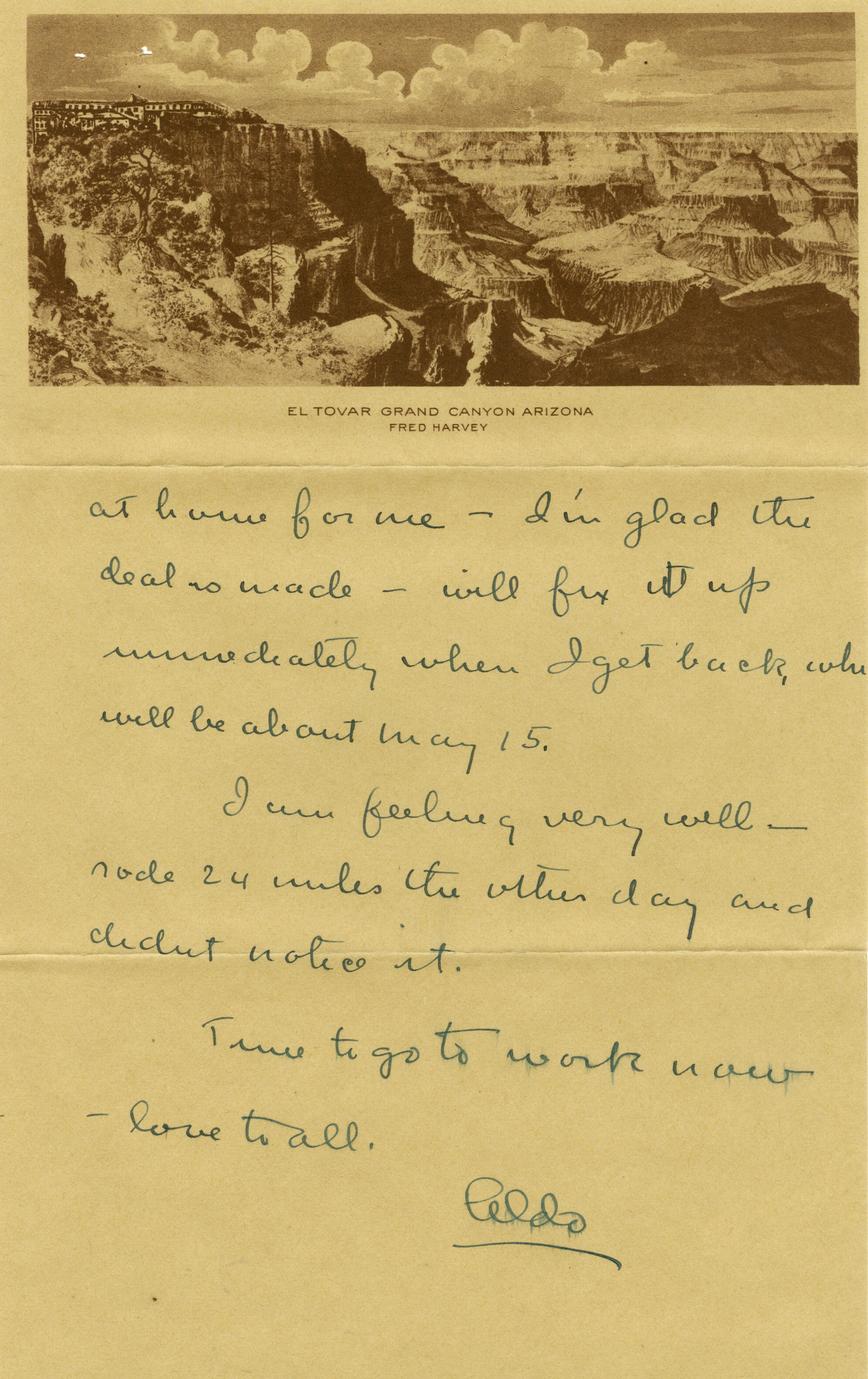 EL TOVAR GRAND CANYON ARIZONA
FRED HARVEY
at home for me – I'm glad the
deal is made – will fix it up
immediately when I get back, whi
will be about May 15.
I am feeling very well –
rode 24 miles the other day and
didnt notice it.
Time to go to work now
– love to all.
Aldo